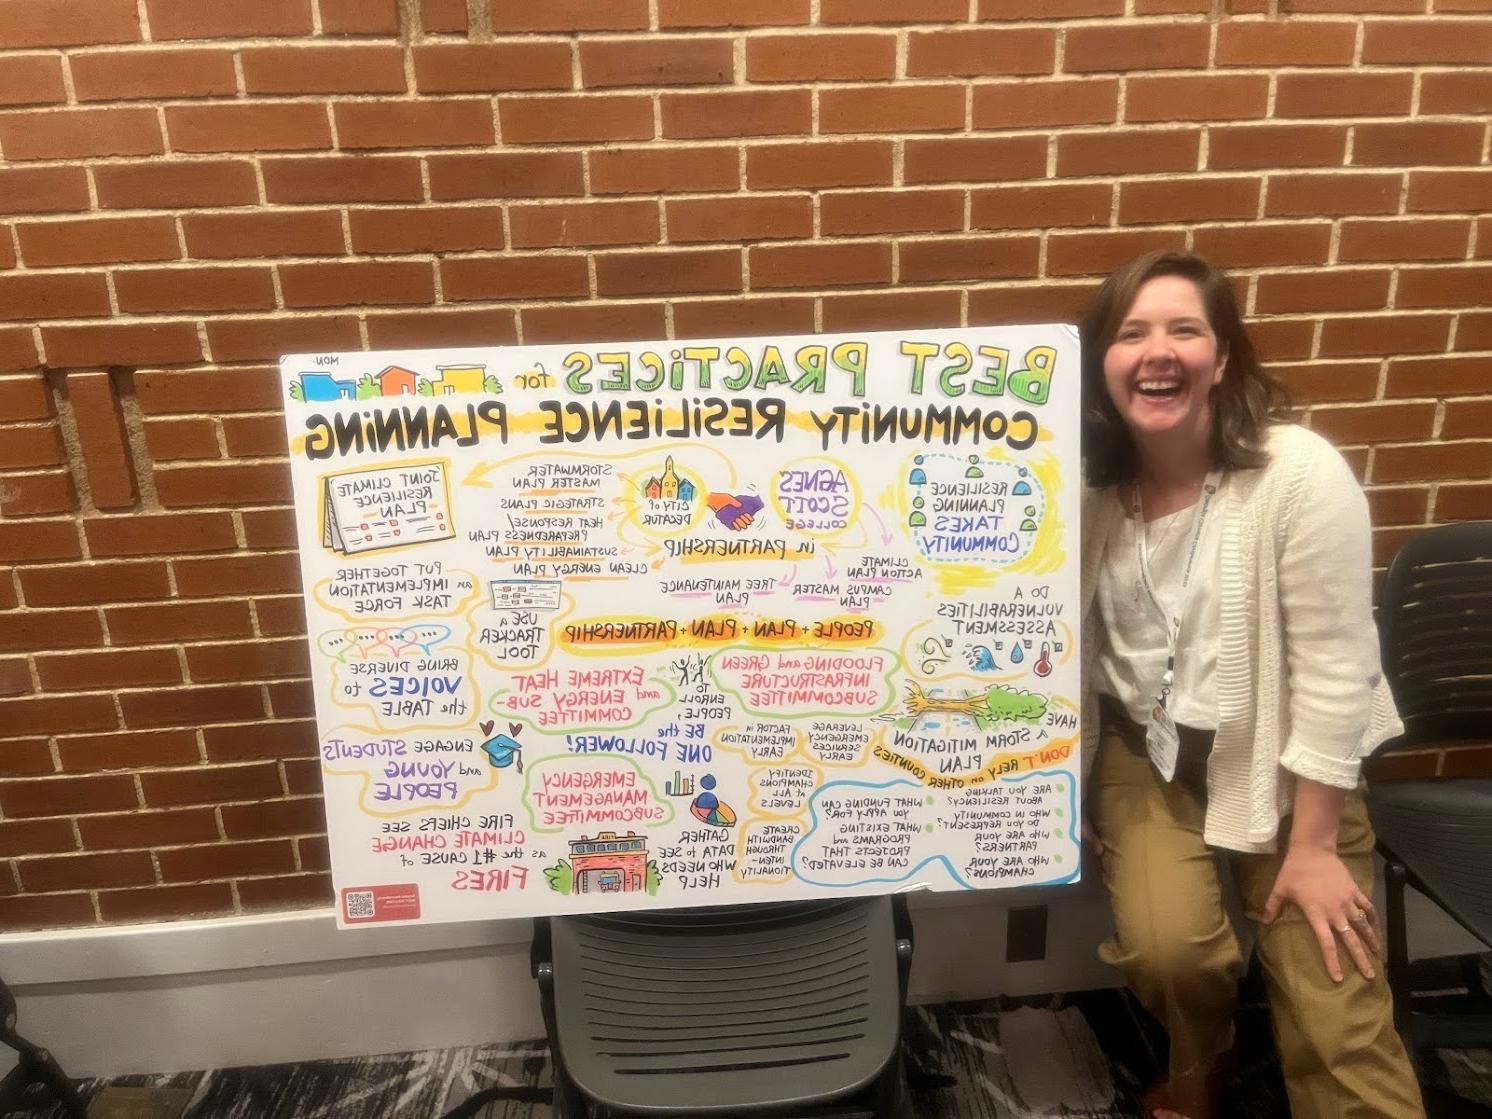 BEST PRACTICES for
MON.
COMMUNITY RESILIENCE PLANNING
RESILIENCE
PLANNING
TAKES
COMMUNITY
AGNES
SCOTT
COLLEGE
CITY of
DECATUR
in PARTNERSHIP
STORMWATER
MASTER PLAN
STRATEGIC PLANS
HEAT RESPONSE/
PREPAREDNESS PLAN
SUSTAINABILITY PLAN
CLEAN ENERGY PLAN
JOINT CLIMATE
RESILIENCE
PLAN
CLIMATE
ACTION PLAN
CAMPUS MASTER
PLAN
TREE MAINTENANCE
PLAN
DO A
VULNERABILITIES
ASSESSMENT
PEOPLE + PLAN + PLAN + PARTNERSHIP
USE a
TRACKER
TOOL
PUT TOGETHER
an IMPLEMENTATION
TASK FORCE
FLOODING and GREEN
INFRASTRUCTURE
SUBCOMMITTEE
TO
ENROLL
PEOPLE,
BE the
ONE FOLLOWER!
EXTREME HEAT
and ENERGY SUB-
COMMITTEE
BRING DIVERSE
VOICES to
the TABLE
HAVE
A STORM MITIGATION
PLAN
DON'T RELY on OTHER COUNTIES
LEVERAGE
EMERGENCY
SERVICES
EARLY
FACTOR in
IMPLEMENTATION
EARLY
IDENTIFY
CHAMPIONS
at ALL
LEVELS
CREATE
BANDWITH
THROUGH
INTEN-
TIONALITY
EMERGENCY
MANAGEMENT
SUBCOMMITTEE
GATHER
DATA to SEE
WHO NEEDS
HELP
ENGAGE STUDENTS
and YOUNG
PEOPLE
ARE YOU TALKING
ABOUT RESILIENCY?
WHO IN COMMUNITY
DO YOU REPRESENT?
WHO ARE YOUR
PARTNERS?
WHO ARE YOUR
CHAMPIONS?
WHAT FUNDING CAN
YOU APPLY FOR?
WHAT EXISTING
PROGRAMS and
PROJECTS THAT
CAN BE ELEVATED?
FIRE
FIRE CHIEFS SEE
CLIMATE CHANGE
as the #1 CAUSE of
FIRES